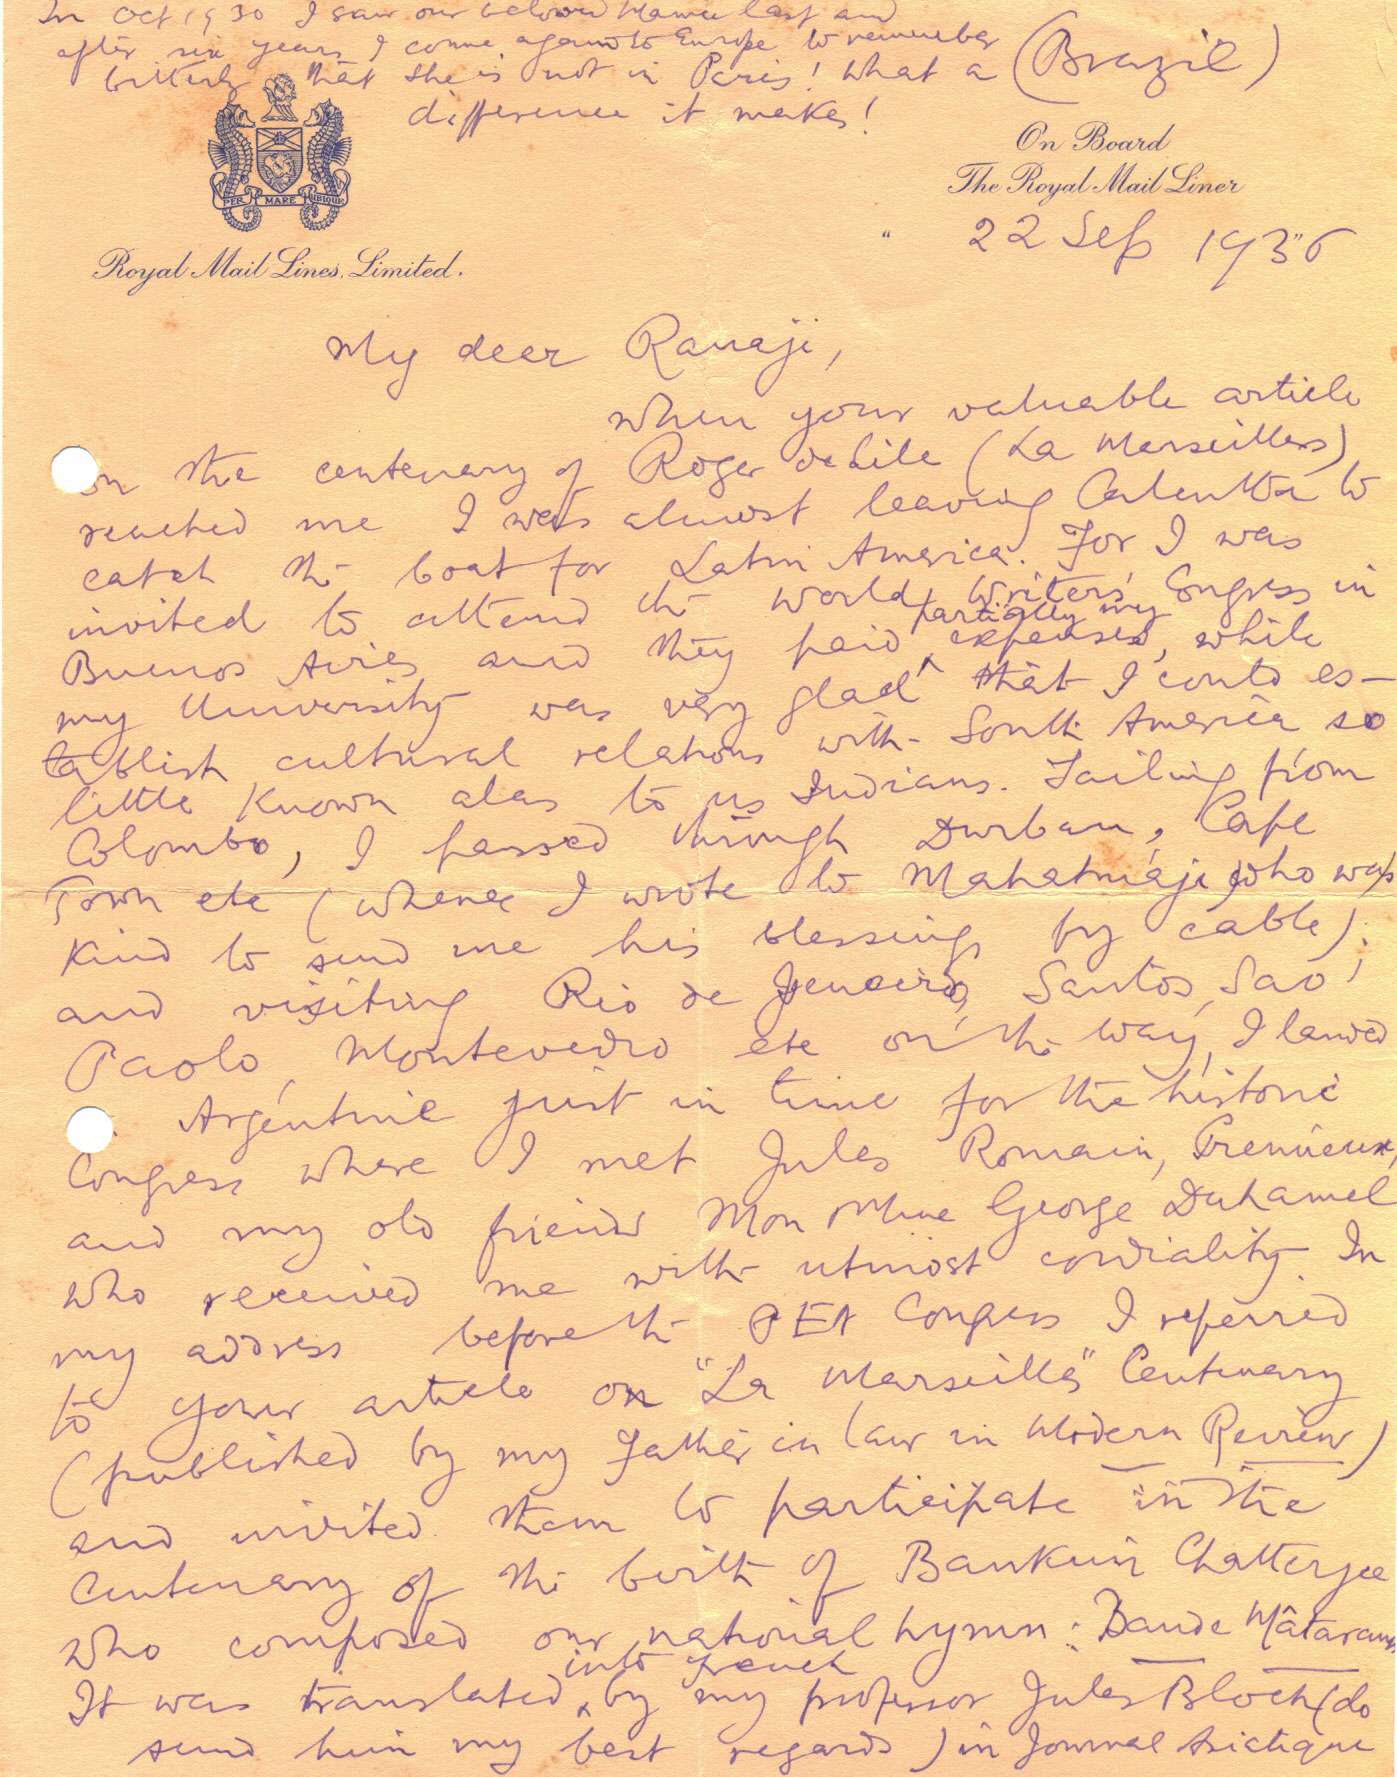 In Oct 1930 I saw our beloved Mamie last and
after six years I come again to Europe to remember
bitterly that she is not in Paris! What a
difference it makes!
(Brazil)
PER MARE UBIQUE
Royal Mail Lines, Limited.
On Board
The Royal Mail Liner
" 22 Sep 1936
My dear Ranaji,
When your valuable article
on the centenary of Roger de Lile (La Marseilles)
reached me I was almost leaving Calcutta to
catch the boat for Latin America. For I was
invited to attend the World Writers' Congress in
Buenos Aires and they paid partially my expenses, while
my University was very glad that I could es-
tablish cultural relations with South America so
little known alas to us Indians. Sailing from
Colombo, I passed through Durban, Cape
Town etc (whence I wrote to Mahatmaji who was
kind to send me his blessings by cable);
and visiting Rio de Janeiro, Santos, Sao
Paolo, Montevedio etc on the way, I landed
Argentine just in time for the historic
Congress where I met Jules Romain, Cremieux,
and my old friends Mon Mme George Duhamel
who received me with utmost cordiality. In
my address before the PEN Congress I referred
to your article on "La Marseilles" Centenary
(published by my father in law in Modern Review)
and invited them to participate in the
Centenary of the birth of Bankim Chatterjee
who composed our national hymn: Bande Mâtaram.
It was translated into French by my professor Jules Bloch (do
send him my best regards) in Journal Asiatique